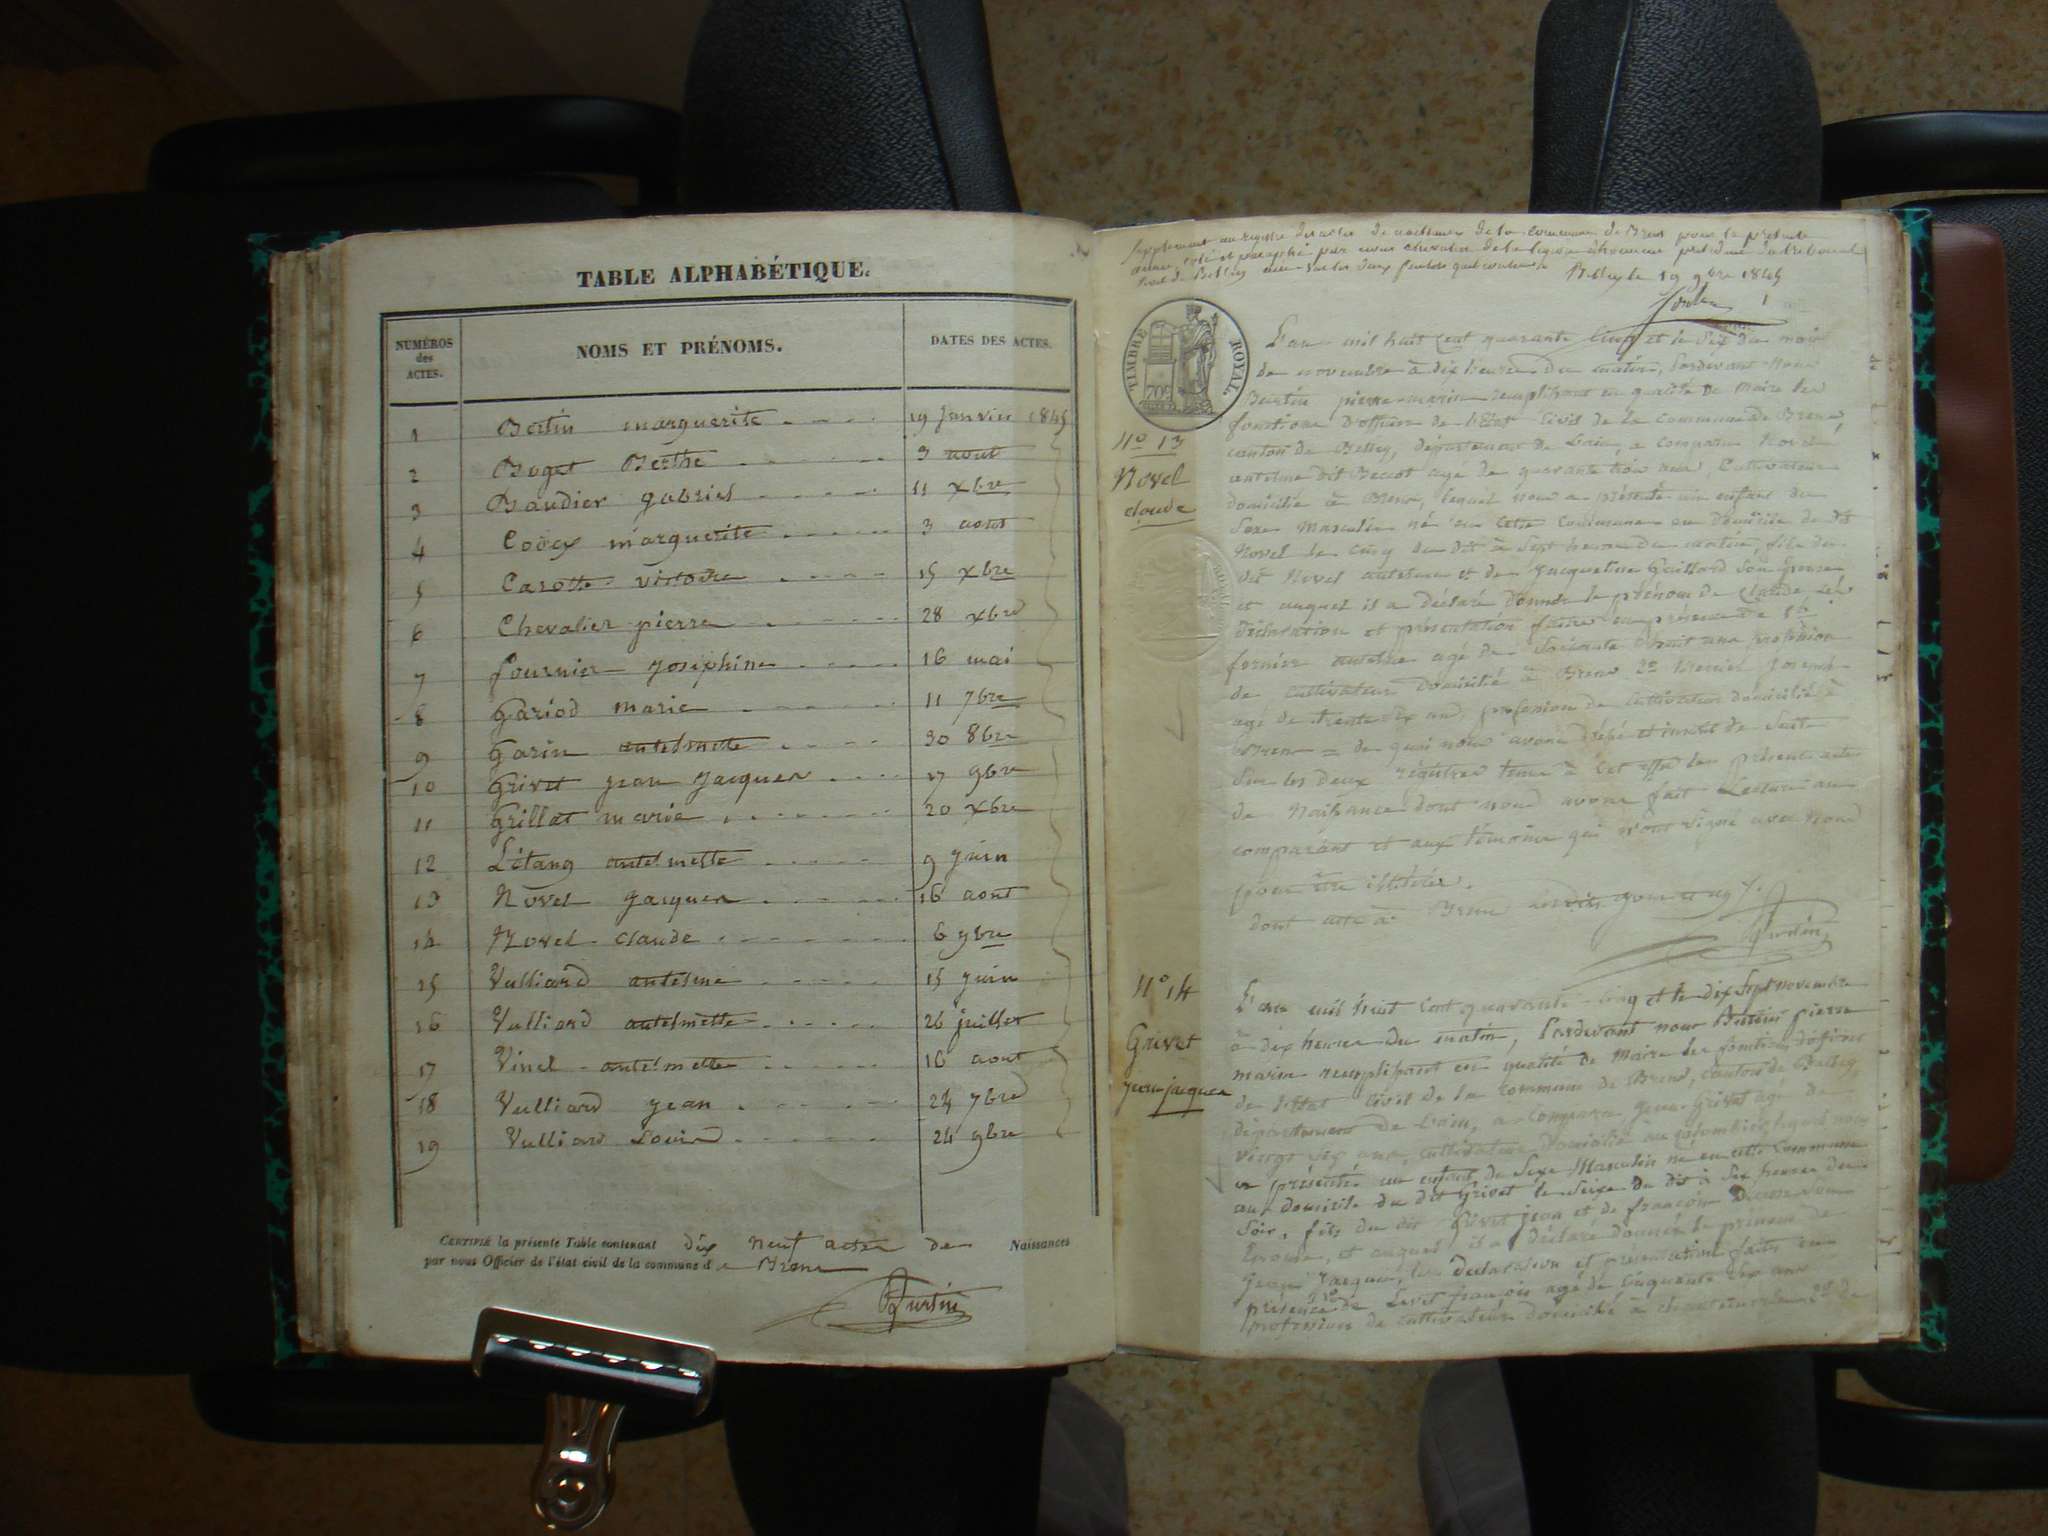 TABLE ALPHABÉTIQUE.
NUMÉROS des ACTES. NOMS ET PRÉNOMS. DATES DES ACTES.
1 Bertin marguerite 19 Janvier 1845
2 Buget Berthe 3 aout
3 Baudier gabriel 11 xbre
4 marguerite 3 aout
5 Carotte victoire 15 xbre
6 Chevalier pierre 28 xbre
7 fournier Josephine 16 mai
8 Gariod marie 11 7bre
9 Garin antelmette 30 8bre
10 Grivet jean Jacques 17 9bre
11 Grillat marie 20 xbre
12 Létang antelmette 9 juin
13 Novel Jacques 16 aout
14 Novel claude 6 9bre
15 Vulliard antelme 15 juin
16 Vulliard antelmette 26 juillet
17 Vinel antelmette 16 aout
18 Vulliard jean 24 9bre
19 Vulliard Louis 24 9bre
CERTIFIÉ la présente Table contenant dix neuf actes de Naissances
par nous Officier de l'état civil de la commune d e Brens
Burtin
Supplément au registre des actes de naissance de la commune de Brens pour la présente
année, coté et paraphé par nous chevalier de la légion d'honneur président du tribunal
civil de Belley Belley le 19 9bre 1845
1
TIMBRE ROYAL
70c
No 13
Novel
claude
L'an mil huit cent quarante cinq et le six du mois
de novembre à dix heures du matin, Pardevant Nous
Burtin pierre marin remplissant en qualité de Maire les
fonctions d'officier de l'Etat Civil de la Commune de Brens
canton de Belley, département de L'ain, a comparu Novel
antelme dit Beccot agé de quarante trois ans, Cultivateur
domicilié à Brens, lequel nous a présenté un enfant du
Sexe Masculin né en cette commune au domicile de dit
Novel le cinq du dit à sept heures du matin, fils du
dit Novel antelme et de Jacqueline Gaillard son épouse
et auquel il a déclaré donner le prénom de Claude, Les
déclaration et présentation faites en présence de
fornier antelme agé de Soixante huit ans profession
de cultivateur domicilié à Brens 2o Joseph
agé de trente six ans, profession de cultivateur domicilié à
Brens = de quoi nous avons dressé et inscrit de suite
Sur les deux régistres tenus à cet effet le présent acte
de Naissance dont nous avons fait Lecture au
comparant et aux témoins qui n'ont signé avec Nous
pour être illétérés.
dont acte à Brens les dits jour et an
Burtin
No 14
Grivet
jean jacques
L'an mil huit cent quarante cinq et le dix Sept novembre
à dix heures du matin, Pardevant nous Burtin pierre
marin remplissant en qualité de Maire les fonctions d'officier
de l'Etat Civil de la Commune de Brens, canton de Belley
département de L'ain, a comparu jean Grivet agé de
vingt six ans, cultivateur domicilié au lequel nous
a présenté un enfant de Sexe Masculin né en cette commune
au domicile du dit Grivet le Seize du dit à Six heures du
Soir, fils du dit Grivet jean et de françoise Son
Epouse, et auquel il a déclaré donner le prénom de
jean Jacques, les déclaration et présentation faites en
présence de françois agé de Cinquante Six ans
profession de cultivateur domicilié à 2o de